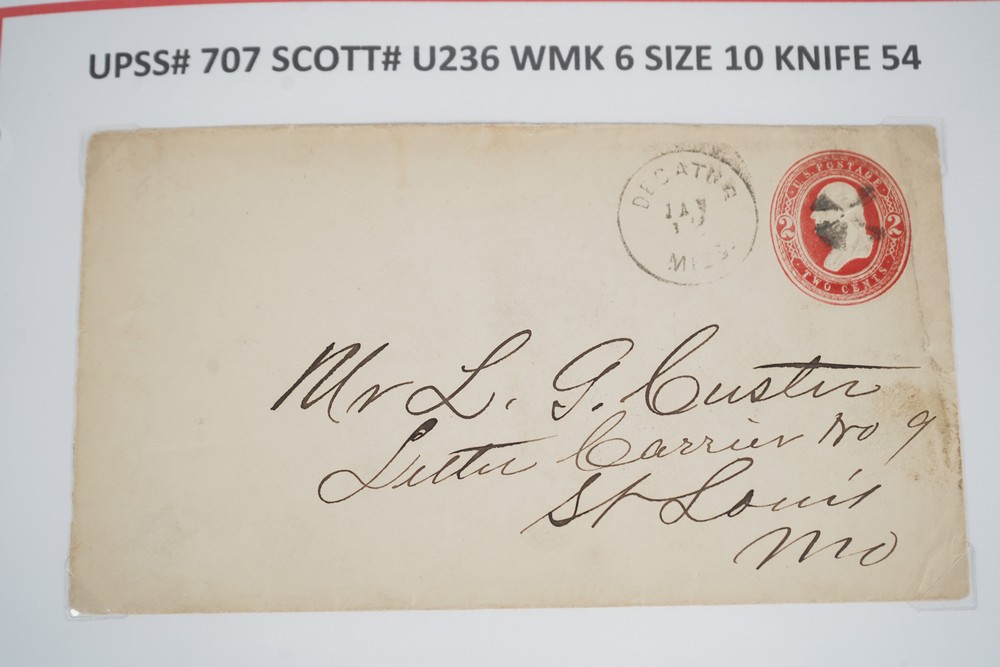 UPSS# 707 SCOTT# U236 WMK 6 SIZE 10 KNIFE 54
DECATUR
JAN
MISS.
U.S. POSTAGE
2 2
TWO CENTS
Mr L. G. Custer
Letter Carrier No 9
St Louis
Mo